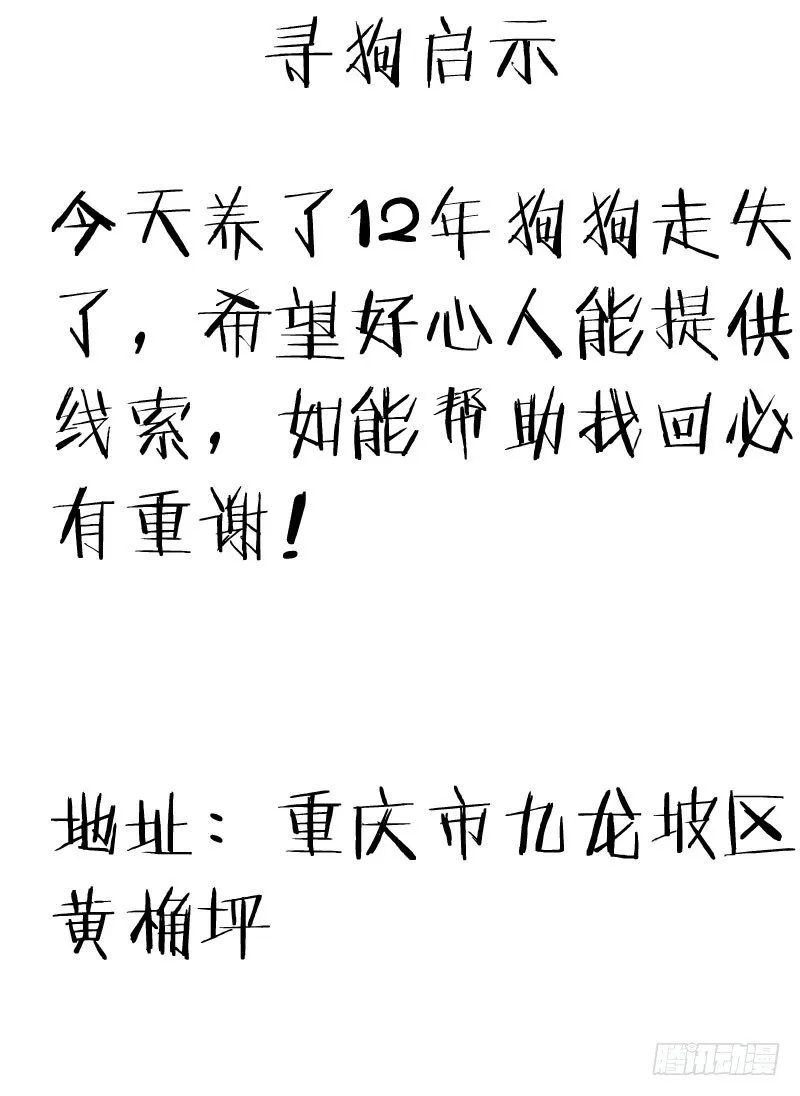 寻狗启示
今天养了12年狗狗走失
了，希望好心人能提供
线索，如能帮助找回必
有重谢！
地址：重庆市九龙坡区
黄桷坪
腾讯动漫